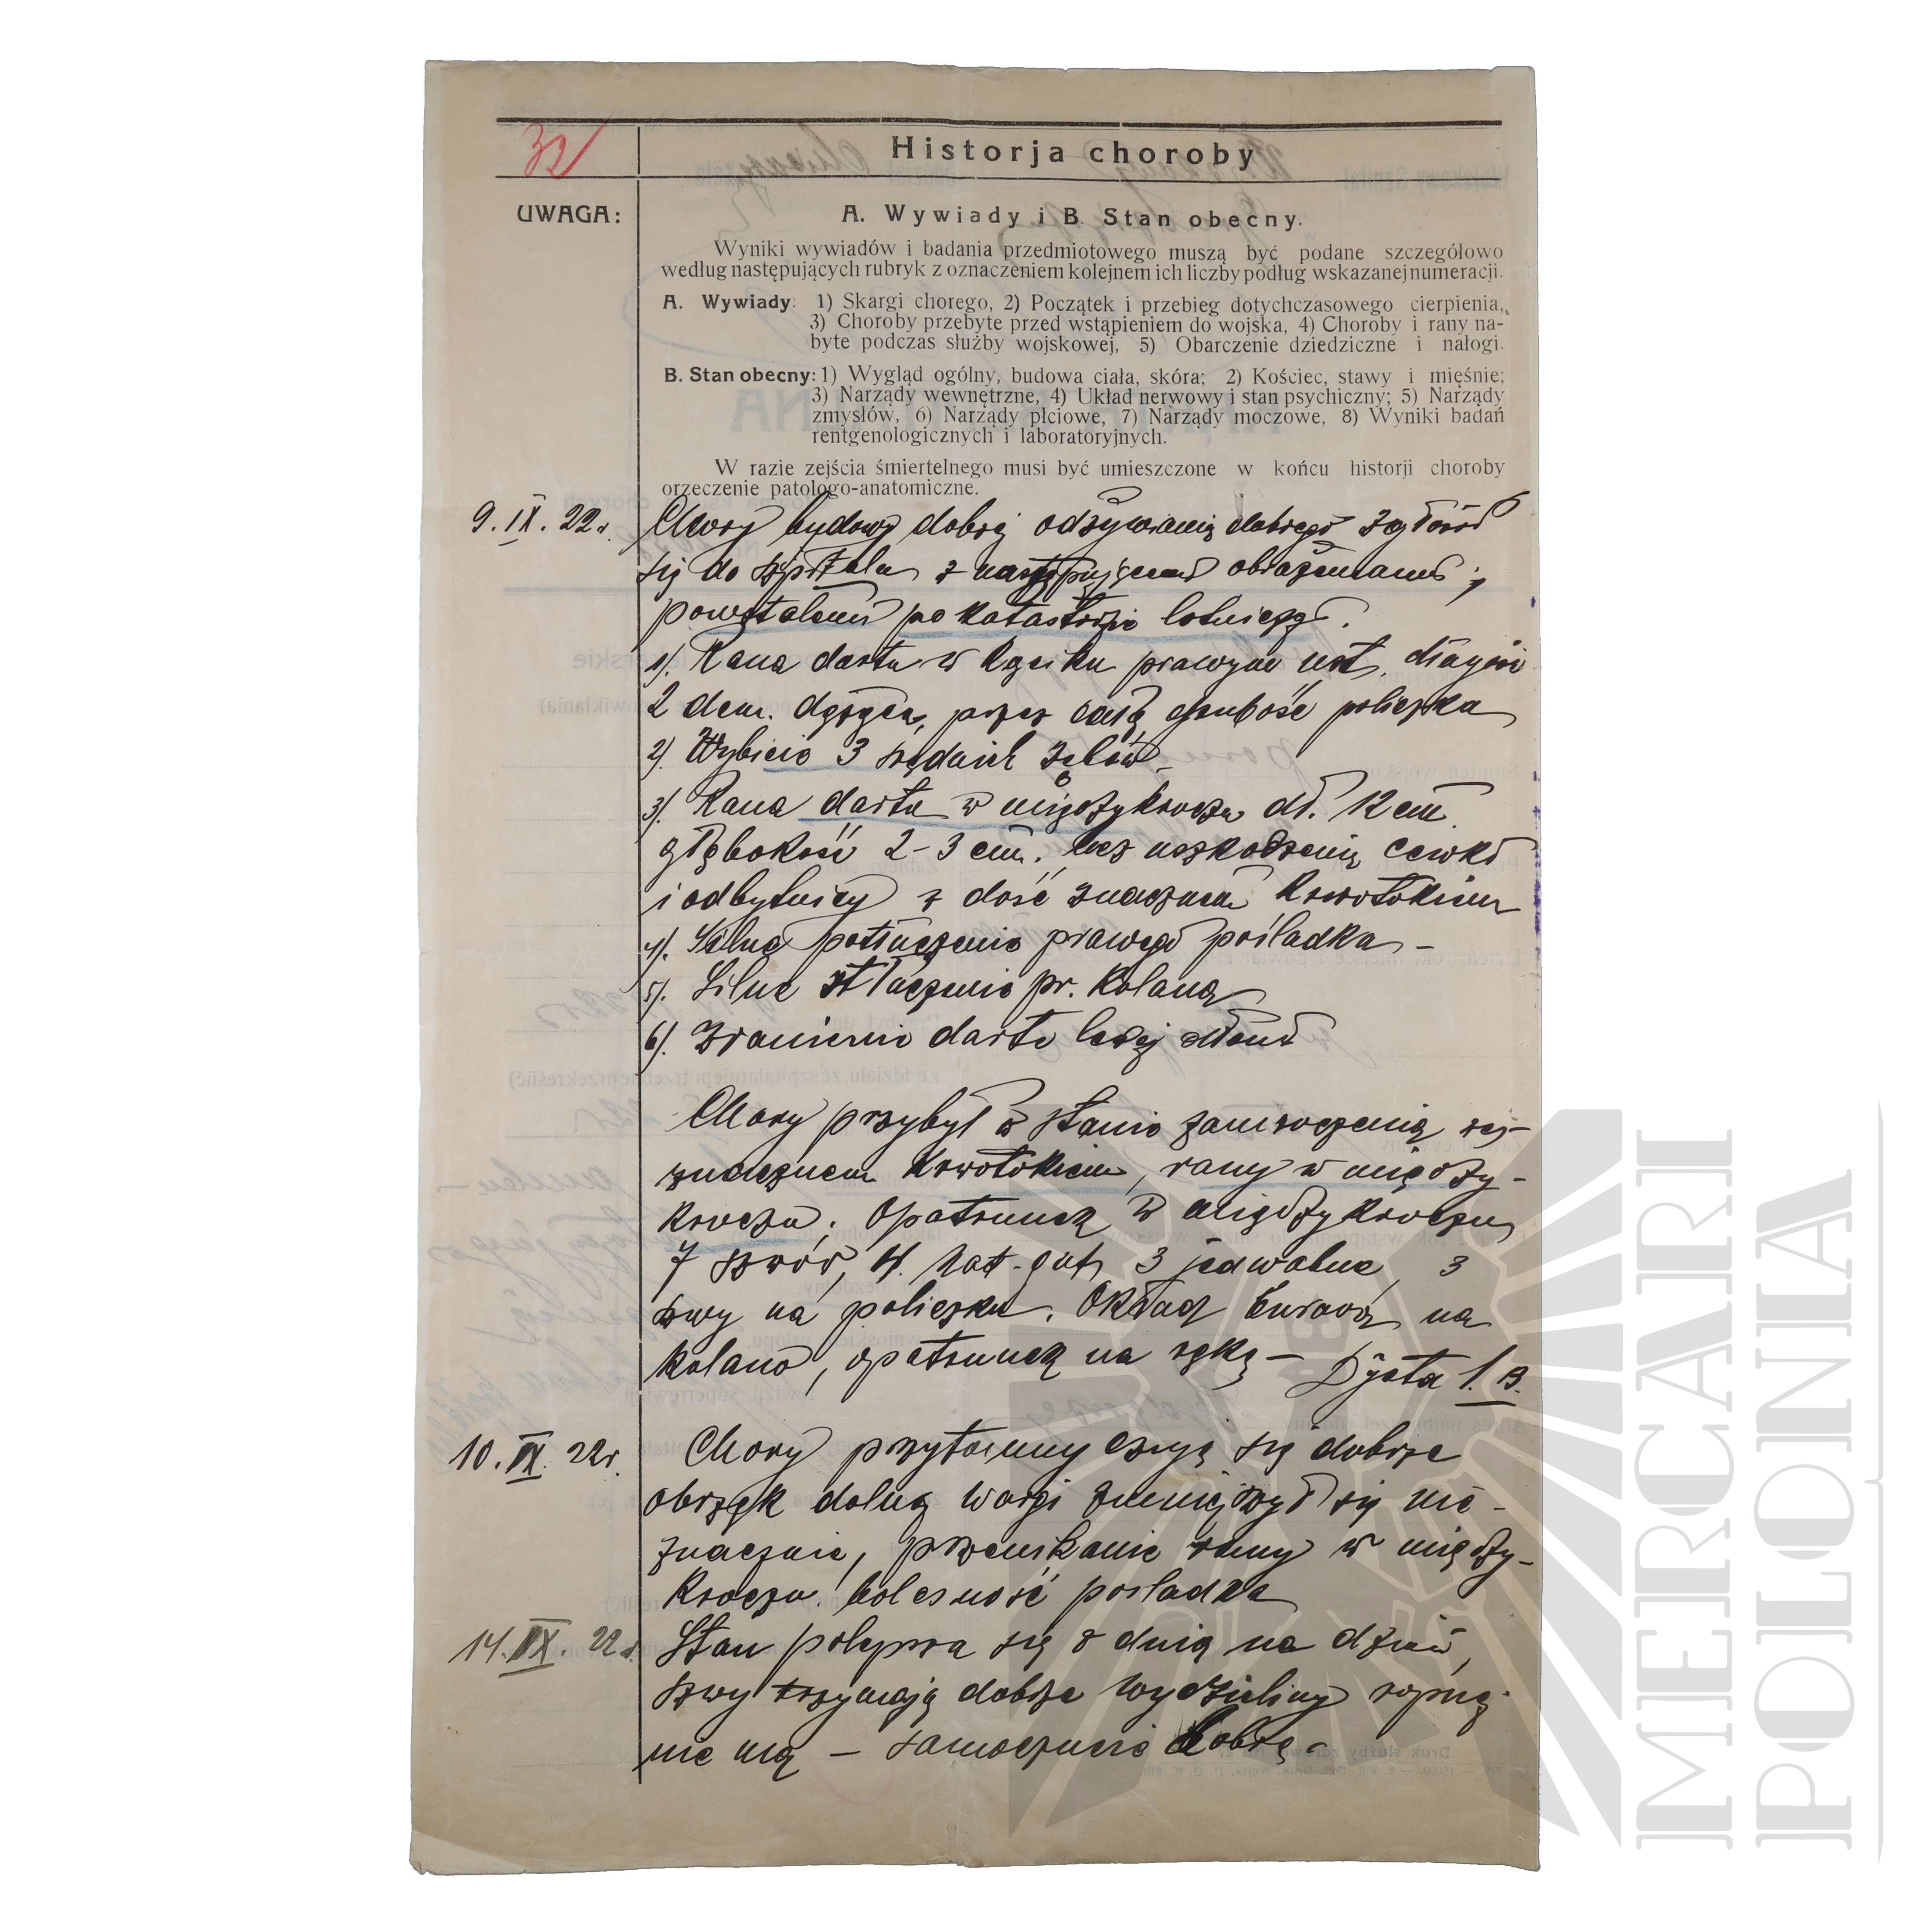 32
Historja choroby
UWAGA:
A. Wywiady i B. Stan obecny.
Wyniki wywiadów i badania przedmiotowego muszą być podane szczegółowo
według następujących rubryk z oznaczeniem kolejnem ich liczby podług wskazanej numeracji.
A. Wywiady: 1) Skargi chorego, 2) Początek i przebieg dotychczasowego cierpienia,
3) Choroby przebyte przed wstąpieniem do wojska, 4) Choroby i rany na-
byte podczas służby wojskowej, 5) Obarczenie dziedziczne i nałogi.
B. Stan obecny: 1) Wygląd ogólny, budowa ciała, skóra; 2) Kościec, stawy i mięśnie;
3) Narządy wewnętrzne, 4) Układ nerwowy i stan psychiczny; 5) Narządy
zmysłów, 6) Narządy płciowe, 7) Narządy moczowe, 8) Wyniki badań
rentgenologicznych i laboratoryjnych.
W razie zejścia śmiertelnego musi być umieszczone w końcu historji choroby
orzeczenie patologo-anatomiczne.
9. IX. 22r. Chory budowy dobrej odżywiania dobrego zgłosił
się do szpitala z następującemi obrażeniami;
powstałemi po katastrofie lotniczej.
1). Rana darta w kąciku prawym ust, długości
2 dcm. przez całą grubość policzka
2) Wybicie 3 zębów –
3). Rana darta w międzykroczu dł. 12 cm.
głębokość 2-3 cm. bez uszkodzenia cewki
i odbytnicy z dość znacznem krwotokiem
4). Silne potłuczenie prawego pośladka –
5). Silne stłuczenie pr. kolana
6). Zranienie darte lewej dłoni
Chory przybył w stanie zamroczenia ze
znacznem krwotokiem, rany w między-
kroczu. Opatrunek w międzykroczu
7 szwów, 4. kat-gut, 3 jedwabne, 3
szwy na policzku. Okład Burowa na
kolano, opatrunek na rękę – Dyeta I. B.
10. IX. 22r. Chory przytomny czuje się dobrze
obrzęk dolnej wargi zmniejszył się nie-
znacznie, przemakanie rany w między-
kroczu. bolesność pośladka
14. IX. 22r. Stan polepsza się z dnia na dzień,
szwy trzymają dobrze wydzieliny ropnej
nie ma – samoczucie dobre.
MERCARI
POLONIA